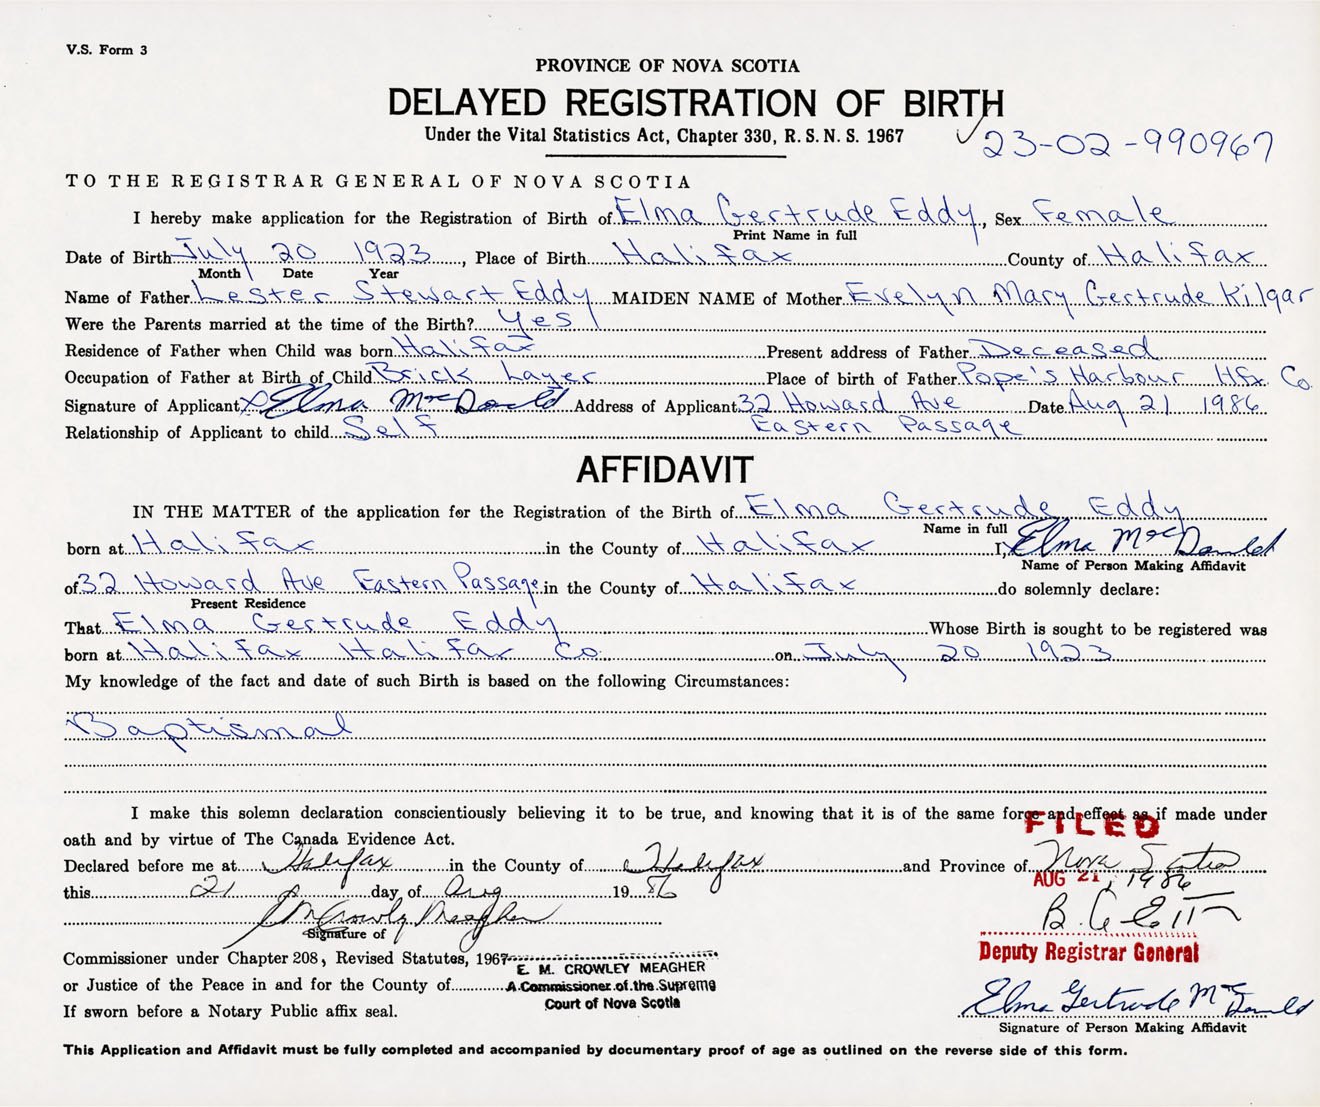 V.S. Form 3
PROVINCE OF NOVA SCOTIA
DELAYED REGISTRATION OF BIRTH
Under the Vital Statistics Act, Chapter 330, R. S. N. S. 1967
✓ 23-02-990967
TO THE REGISTRAR GENERAL OF NOVA SCOTIA
I hereby make application for the Registration of Birth of Elma Gertrude Eddy, Sex Female
Print Name in full
Date of Birth July 20 1923, Place of Birth Halifax County of Halifax
Month Date Year
Name of Father Lester Stewart Eddy MAIDEN NAME of Mother Evelyn Mary Gertrude Kilgar
Were the Parents married at the time of the Birth? Yes
Residence of Father when Child was born Halifax Present address of Father Deceased
Occupation of Father at Birth of Child Brick Layer Place of birth of Father Pope's Harbour Hfx Co.
Signature of Applicant X Elma McDonald Address of Applicant 32 Howard Ave Date Aug 21 1986
Relationship of Applicant to child Self Eastern Passage
AFFIDAVIT
IN THE MATTER of the application for the Registration of the Birth of Elma Gertrude Eddy
Name in full
born at Halifax in the County of Halifax I, Elma McDonald
Name of Person Making Affidavit
of 32 Howard Ave Eastern Passage in the County of Halifax do solemnly declare:
Present Residence
That Elma Gertrude Eddy Whose Birth is sought to be registered was
born at Halifax Halifax Co. on July 20 1923
My knowledge of the fact and date of such Birth is based on the following Circumstances:
Baptismal
I make this solemn declaration conscientiously believing it to be true, and knowing that it is of the same force and effect as if made under
FILED
oath and by virtue of The Canada Evidence Act.
Declared before me at Halifax in the County of Halifax and Province of Nova Scotia
AUG 21, 1986
this 21 day of Aug 1986
E M Crowley Meagher
Signature of
Deputy Registrar General
Commissioner under Chapter 208, Revised Statutes, 1967
E. M. CROWLEY MEAGHER
or Justice of the Peace in and for the County of
A Commissioner of the Supreme
Court of Nova Scotia
If sworn before a Notary Public affix seal.
Elma Gertrude McDonald
Signature of Person Making Affidavit
This Application and Affidavit must be fully completed and accompanied by documentary proof of age as outlined on the reverse side of this form.